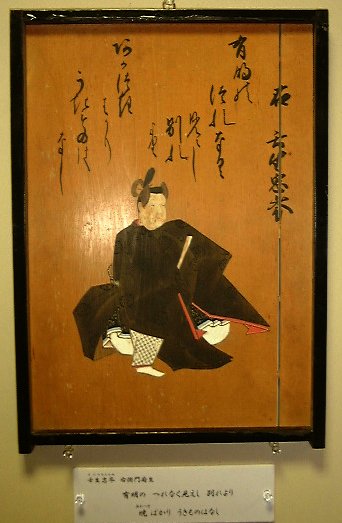 右 壬生忠岑
有明の
つれなく
見えし
別れ
より
あかつき
はかり
うきものは
なし
壬生忠岑 右衛門府生
有明の つれなく見えし 別れより
暁 ばかり うきものはなし